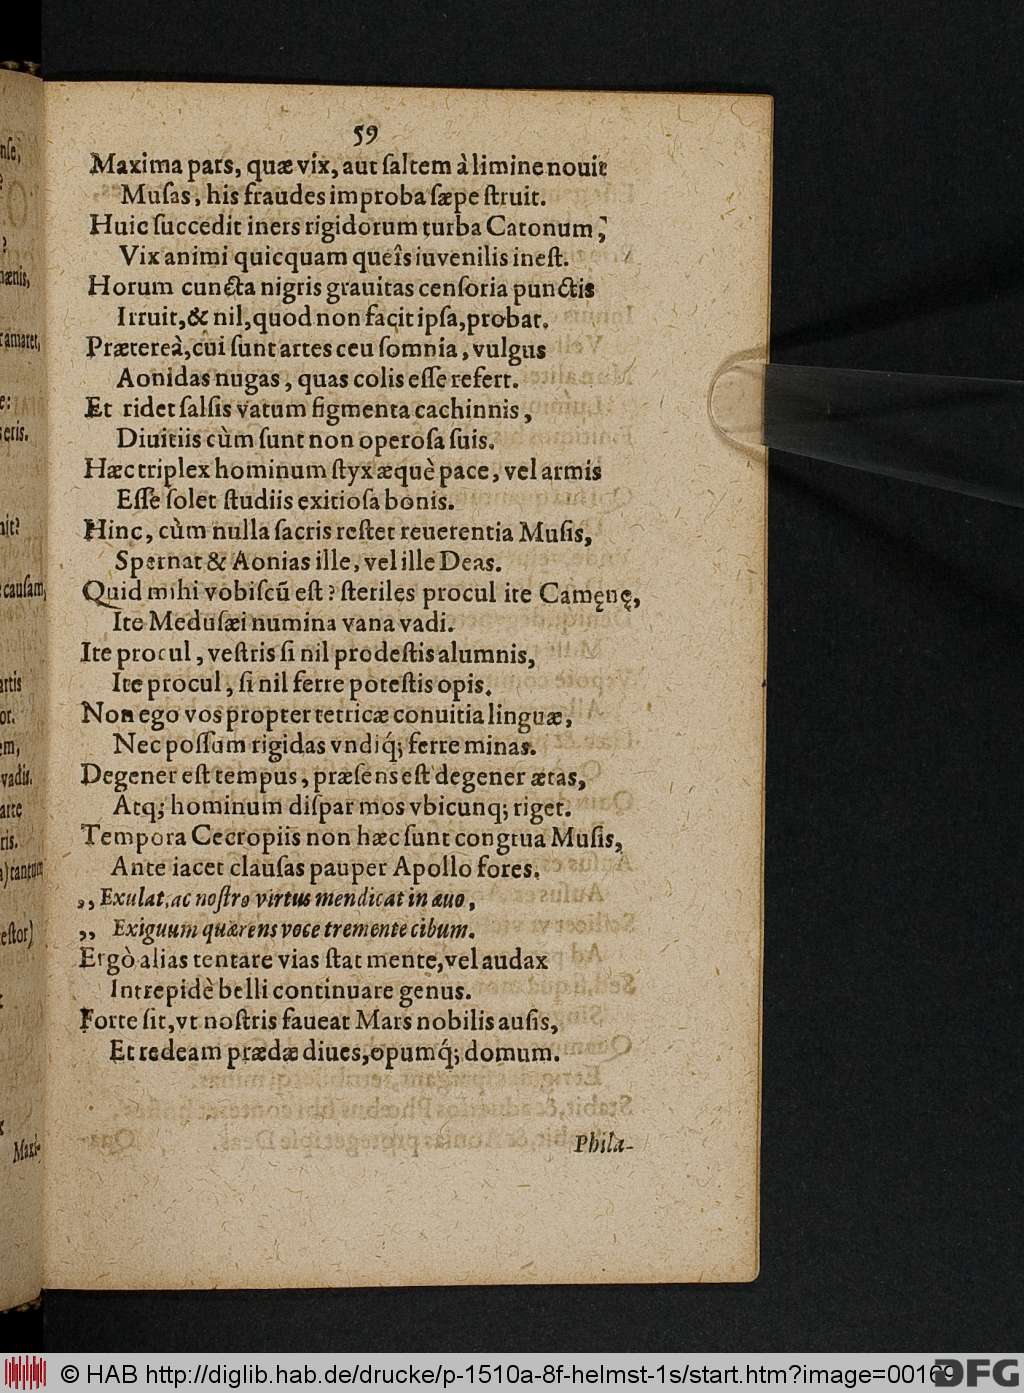 59
Maxima pars, quæ vix, aut ſaltem à limine nouit
Muſas, his fraudes improba ſæpe ſtruit.
Huic ſuccedit iners rigidorum turba Catonum;
Vix animi quicquam queîs iuvenilis ineſt.
Horum cuncta nigris grauitas cenſoria punctis
Irruit, & nil, quod non facit ipſa, probat.
Prætereà, cui ſunt artes ceu ſomnia, vulgus
Aonidas nugas, quas colis eſſe refert.
Et ridet ſalſis vatum figmenta cachinnis,
Diuitiis cùm ſunt non operoſa ſuis.
Hæc triplex hominum ſtyx æquè pace, vel armis
Eſſe ſolet ſtudiis exitioſa bonis.
Hinc, cùm nulla ſacris reſtet reuerentia Muſis,
Spernat & Aonias ille, vel ille Deas.
Quid mihi vobiſcũ eſt? ſteriles procul ite Camęnę,
Ite Meduſæi numina vana vadi.
Ite procul, veſtris ſi nil prodeſtis alumnis,
Ite procul, ſi nil ferre poteſtis opis.
Non ego vos propter tetricæ conuitia linguæ,
Nec poſſum rigidas vndiq́; ferre minas.
Degener eſt tempus, præſens eſt degener ætas,
Atq; hominum diſpar mos vbicunq; riget.
Tempora Cecropiis non hæc ſunt congrua Muſis,
Ante iacet clauſas pauper Apollo fores.
,, Exulat, ac noſtro virtus mendicat in æuo,
,, Exiguum quærens voce tremente cibum.
Ergò alias tentare vias ſtat mente, vel audax
Intrepidè belli continuare genus.
Forte ſit, vt noſtris faueat Mars nobilis auſis,
Et redeam prædæ diues, opumq́; domum.
Phila-
nſe,
?
?
ænis,
amaret,
e:
eris.
nit?
cauſam,
artis
or.
em,
vadis.
arte
ris.
) tantum
eſtor)
Maxi-
© HAB http://diglib.hab.de/drucke/p-1510a-8f-helmst-1s/start.htm?image=00169
DFG